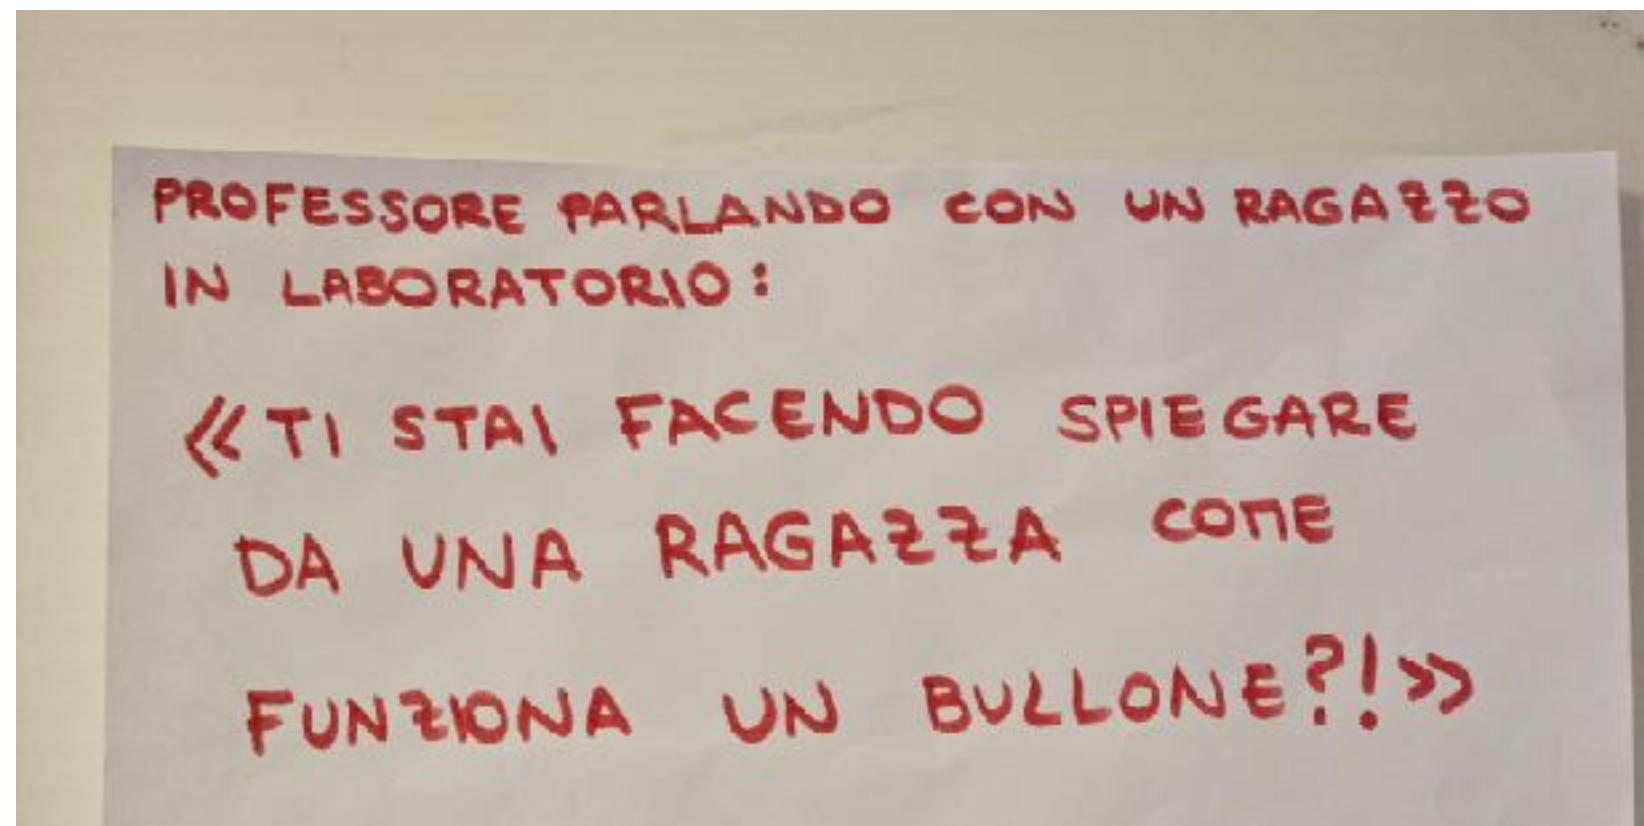 PROFESSORE PARLANDO CON UN RAGAZZO
IN LABORATORIO:
«TI STAI FACENDO SPIEGARE
DA UNA RAGAZZA COME
FUNZIONA UN BULLONE?!»